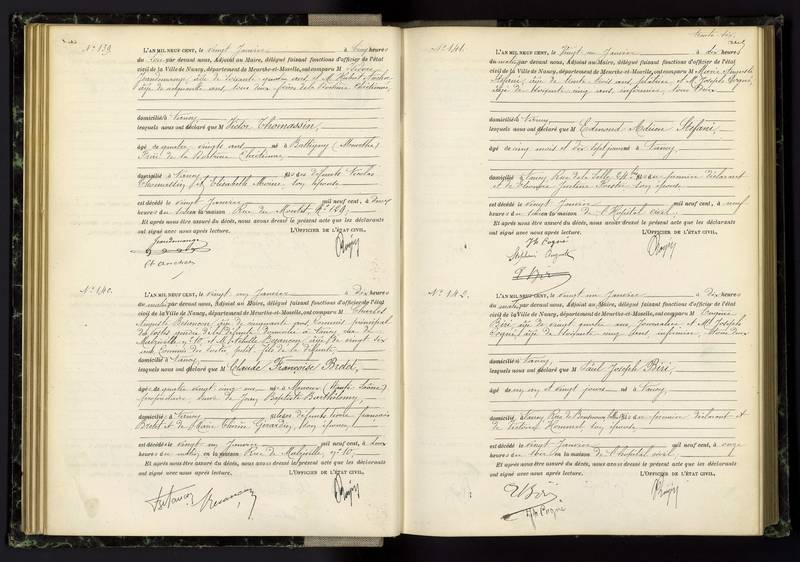 N° 139
L'AN MIL NEUF CENT, le vingt Janvier à cinq heures
du soir par devant nous, Adjoint au Maire, délégué faisant fonctions d'officier de l'état
civil de la Ville de Nancy, département de Meurthe-et-Moselle, ont comparu M
Jeandemange, âgé de soixante quatre ans et M. Hubert
âgé de cinquante ans, tous deux frères de la Doctrine Chrétienne,
domicilié à Nancy
lesquels nous ont déclaré que M Victor Thomassin,
âgé de quatre vingts ans né à Battigny (Meurthe)
Frère de la Doctrine Chrétienne
domicilié à Nancy fils de défunts Nicolas
Thomassin et Elisabeth son épouse
est décédé le vingt Janvier mil neuf cent, à deux
heures du soir en la maison Rue du Montet, N° 120.
Et après nous être assuré du décès, nous avons dressé le présent acte que les déclarants
ont signé avec nous après lecture. L'OFFICIER DE L'ÉTAT CIVIL,
Jeandemange
N° 140.
L'AN MIL NEUF CENT, le vingt un Janvier à Dix heures
du matin par devant nous, Adjoint au Maire, délégué faisant fonctions d'officier de l'état
civil de la Ville de Nancy, département de Meurthe-et-Moselle, ont comparu M Charles
Auguste Besançon, âgé de cinquante ans, Commis principal
des postes, gendre de la défunte, domicilié à Nancy rue de
Malzéville n° 10, et M. Besançon, âgé de vingt six
ans, Commis des postes, petit fils de la défunte
domicilié à Nancy
lesquels nous ont déclaré que M Claude Françoise Bretet,
âgé de quatre vingt cinq ans né à Membrey (Haute Saône)
propriétaire, veuve de Jean Baptiste Barthélemy,
domicilié à Nancy fille des défunts François
Bretet et de Marie Thérèse Girardin, son épouse,
est décédé le vingt un Janvier mil neuf cent, à deux
heures du matin, en la maison Rue de Malzéville, n° 10,
Et après nous être assuré du décès, nous avons dressé le présent acte que les déclarants
ont signé avec nous après lecture. L'OFFICIER DE L'ÉTAT CIVIL,
Besançon Besançon
trente-six.
N° 141.
L'AN MIL NEUF CENT, le Vingt un Janvier à dix heures
du matin par devant nous, Adjoint au Maire, délégué faisant fonctions d'officier de l'état
civil de la Ville de Nancy, département de Meurthe-et-Moselle, ont comparu M Marie Auguste
Stéfani, âgé de trente trois ans, plâtrier et M. Joseph Cogné,
âgé de soixante cinq ans, infirmier, tous deux
domicilié à Nancy
lesquels nous ont déclaré que M Edmond Adrien Stéfani,
âgé de cinq mois et dix sept jours né à Nancy
domicilié à Nancy, Rue de la Salle, fils du premier déclarant
et de Florentine Justine son épouse
est décédé le vingt Janvier mil neuf cent, à neuf
heures du soir en la maison de l'Hôpital civil,
Et après nous être assuré du décès, nous avons dressé le présent acte que les déclarants
ont signé avec nous après lecture. L'OFFICIER DE L'ÉTAT CIVIL,
Jh Cogné
Stéphani Auguste
N° 142.
L'AN MIL NEUF CENT, le vingt un Janvier à Dix heures
du matin par devant nous, Adjoint au Maire, délégué faisant fonctions d'officier de l'état
civil de la Ville de Nancy, département de Meurthe-et-Moselle, ont comparu M
Béri, âgé de vingt quatre ans, Journalier et M. Joseph
Cogné, âgé de soixante cinq ans, infirmier, tous deux
domicilié à Nancy,
lesquels nous ont déclaré que M Paul Joseph Béri,
âgé de un an et vingt jours né à Nancy,
domicilié à Nancy Rue de fils du premier déclarant et
de Victorine Hommel son épouse
est décédé le vingt Janvier mil neuf cent, à onze
heures du soir en la maison de l'hôpital civil,
Et après nous être assuré du décès, nous avons dressé le présent acte que les déclarants
ont signé avec nous après lecture. L'OFFICIER DE L'ÉTAT CIVIL,
Béri
Jh Cogné